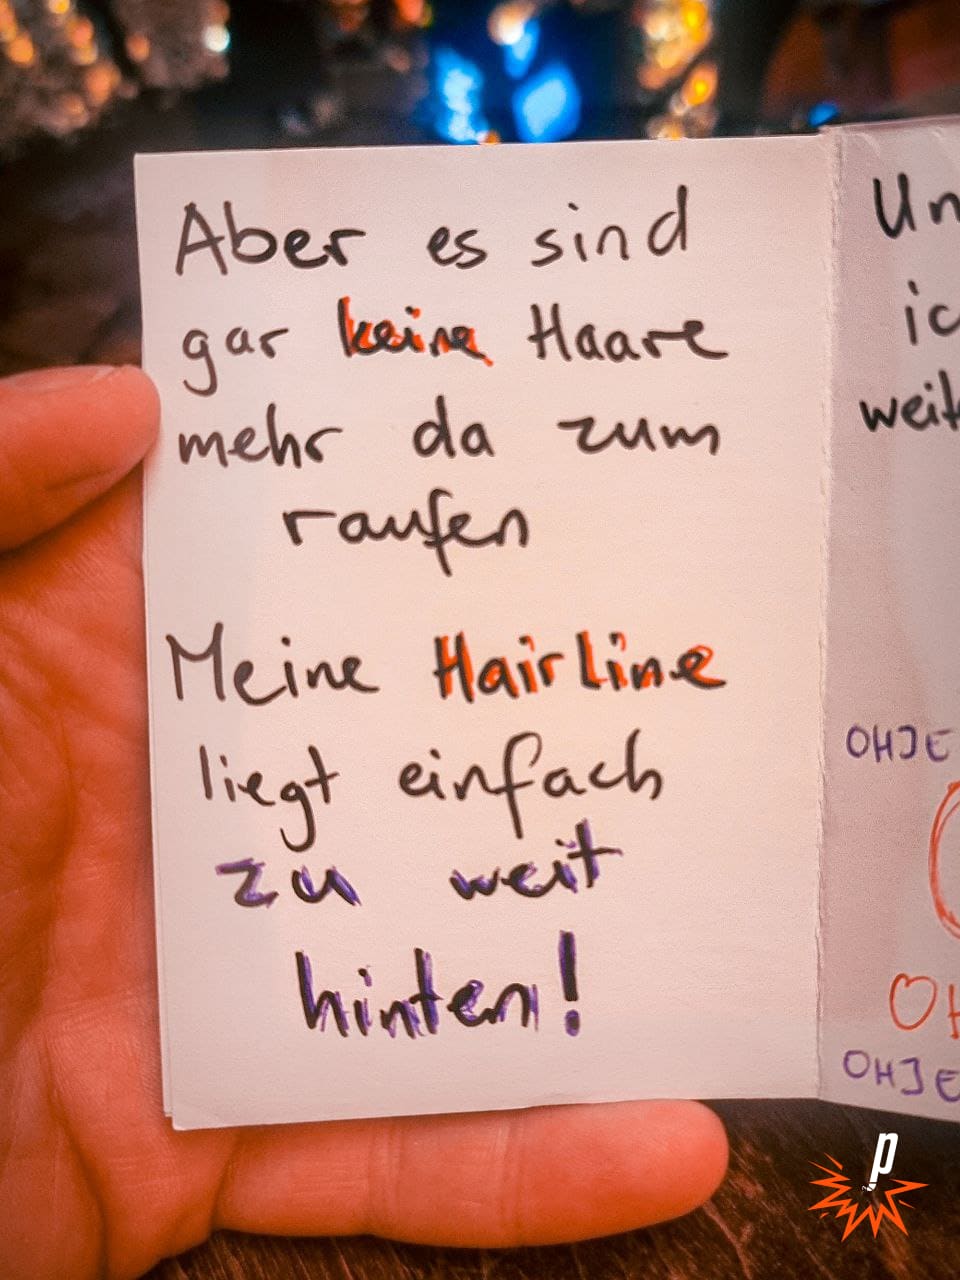 Aber es sind
gar keine Haare
mehr da zum
raufen
Meine Hairline
liegt einfach
zu weit
hinten!
Un
ic
weit
OHJE
OH
OHJE
p